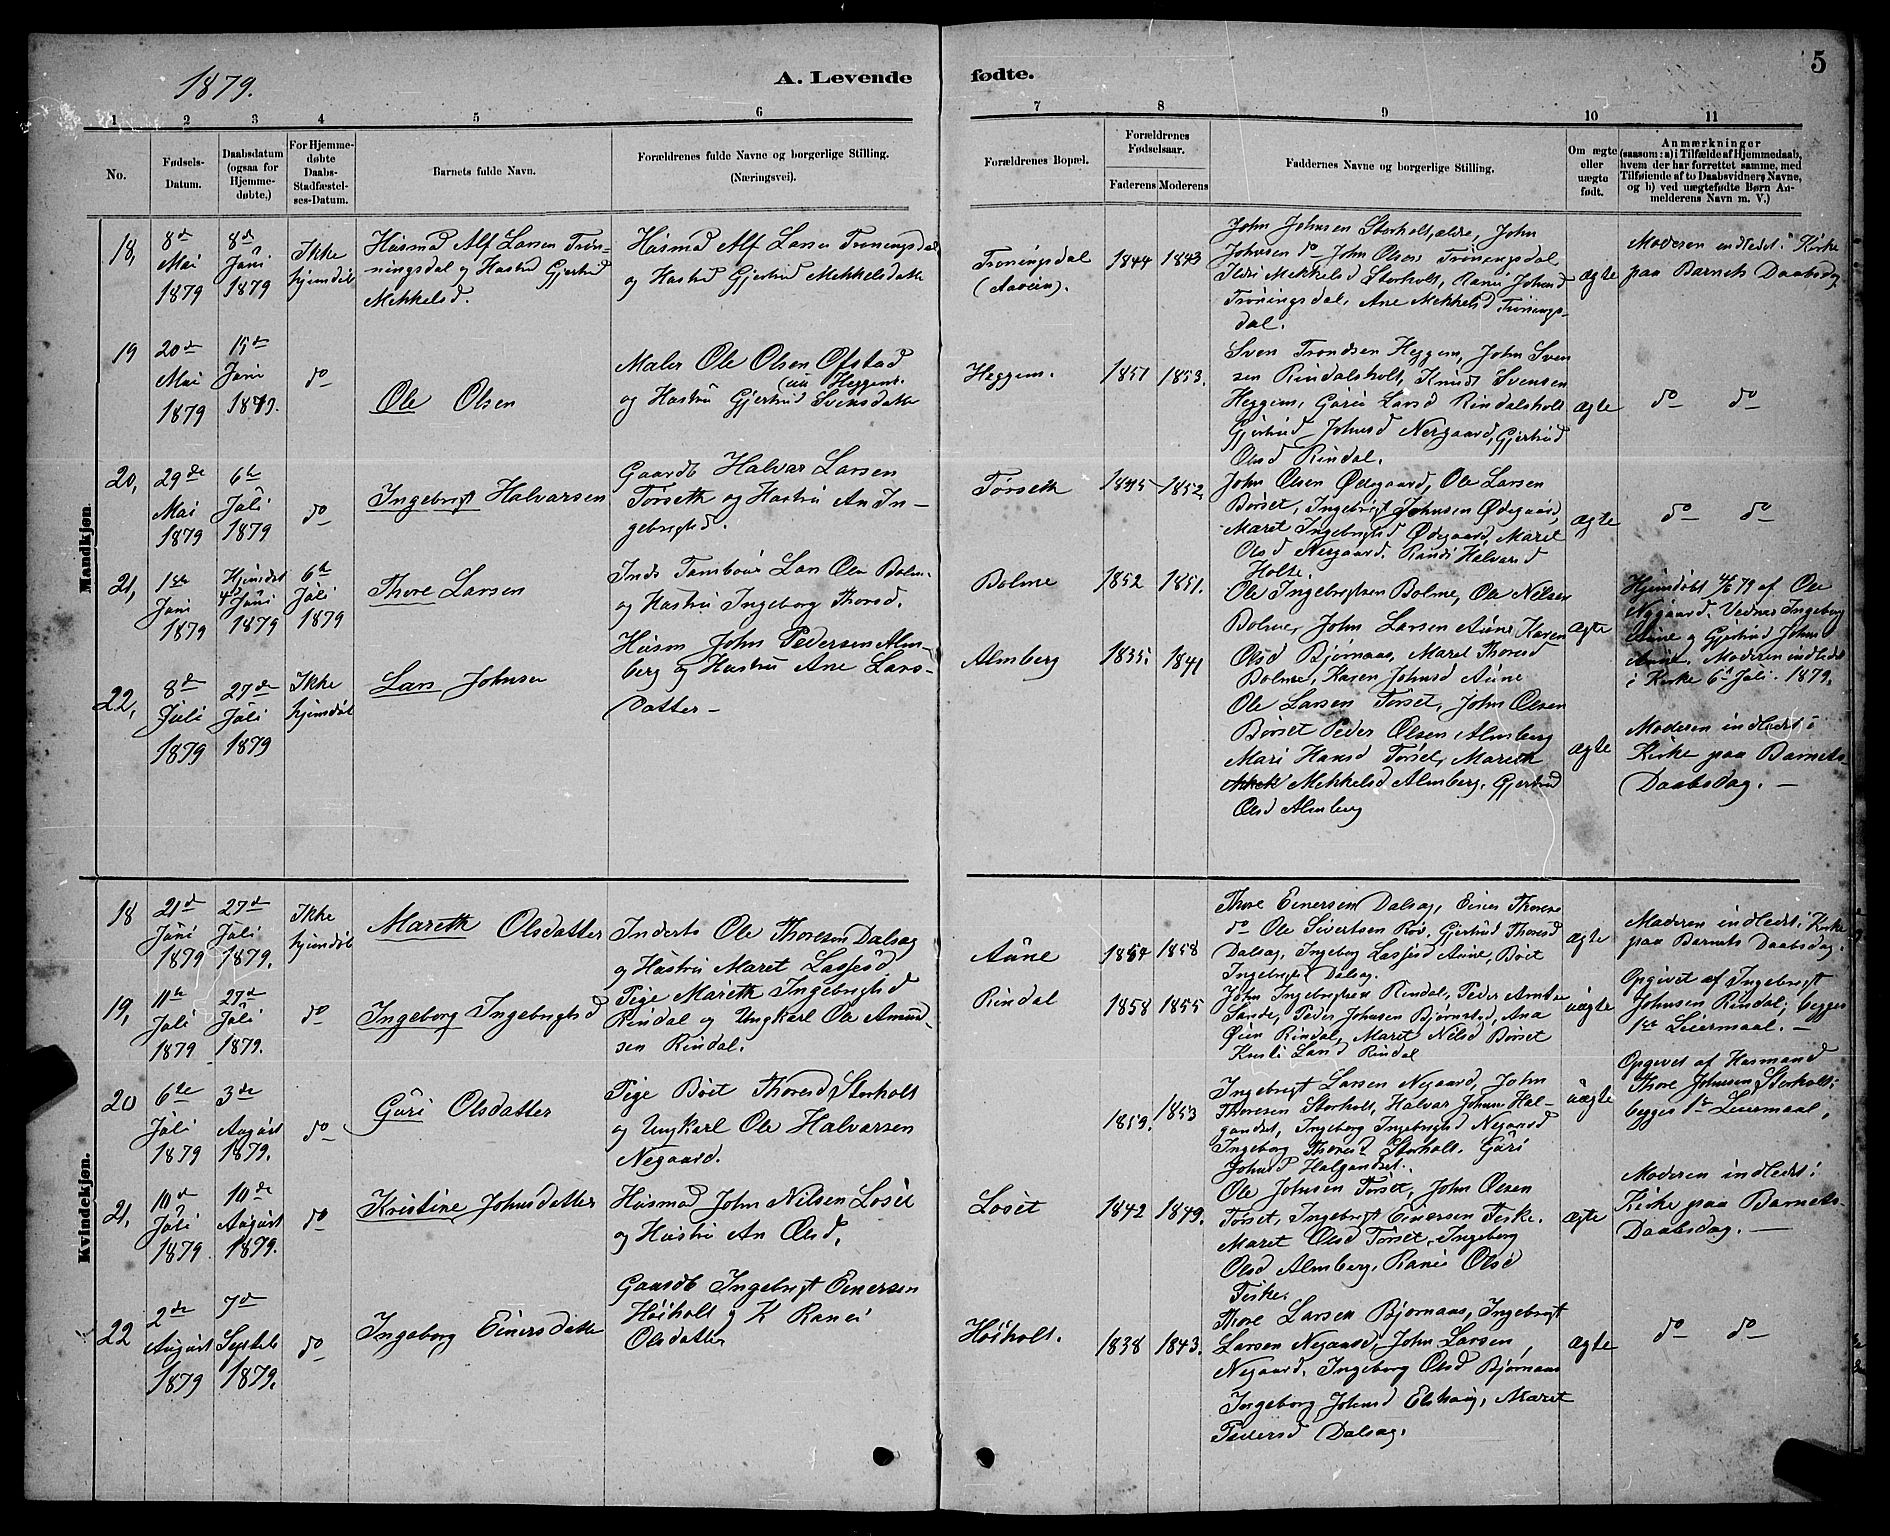 1879.
A. Levende
fødte.
5
1
2
3
4
5
6
7
8
9
10
11
No.
Fødsels-
Datum.
Daabsdatum
(ogsaa for
Hjemme-
døbte.)
For Hjemme-
døbte
Daabs-
Stadfæstel-
ses-Datum.
Barnets fulde Navn.
Forældrenes fulde Navne og borgerlige Stilling.
(Næringsvei).
Forældrenes Bopæl.
Forældrenes
Fødselsaar.
Faderens
Moderens
Faddernes Navne og borgerlige Stilling.
Om ægte
eller
uægte
født.
Anmærkninger
(saasom: a) i Tilfælde af Hjemmedaab,
hvem der har forrettet samme, med
Tilføiende af to Daabsvidners Navne,
og b) ved uægtefødte Børn An-
melderens Navn m. V.)
Mandkjøn.
18,
8de
Mai
1879
8de
Juni
1879
Ikke
hjemdøbt
Husmd Alf Larsen Trøn-
ningsdal og Hustru Gjertrud
Mekkelsd.
Husmd Alf Larsen Trøningsdal
og Hustru Gjertrud Mekkelsdatter
Trøningsdal
1844
1843
John Johnsen Storholt, ældre, John
Johnsen do John Olsen Trøningsdal
Ildri Mekkelsd Storholt, Ranei Johnsd
Trøningsdal, Ane Mekkelsd Trønings-
dal.
ægte
Moderen indledet i Kirke
paa Barnets Daabsdag
19
20de
Mai
1879
15de
Juni
1879.
do
Ole Olsen
Maler Ole Olsen Ofstad
Heggem.
og Hustru Gjertrud Svensdatter
Heggem.
1851
1853.
Sven Trondsen Heggem, John Sven
sen Rindalsholt, Knudt Svensen
Heggem, Guri Larsd Rindalsholt
Gjertrud Johnsd Nergaard, Gjertrud
Olsd Rindal.
ægte
do do
20,
29de
Mai
1879
6te
Juli
1879
do
Ingebrigt Halvarsen
Gaardb Halvar Larsen
Tørseth og Hustru An In-
gebrigtsd.
Tørseth
1852
John Olsen Ødegaard, Ole Larsen
Børset, Ingebrigt Johnsen Ødegaard,
Maret Ingebrigtsd Ødegaard, Maret
Olsd Nergaard, Randi Halvarsd
Holte.
ægte
do do
21,
1ste
Juni
1879
Hjemdøbt
4de Juni
1879
6te
Juli
1879
Thore Larsen
Inds Tambour Lars Olsen Bolm.
og Hustru Ingeborg Thorsd.
Bolme
1852
1851.
Ole Ingebrigtsen Bolme, Ole Nilsen
Bolme, John Larsen Aune, Karen
Olsd Bjørnaas, Maret Thoresd
Bolme, Karen Johnsd Aune
ægte
Hjemdøbt 4/6 79 af Ole
Nygaard. Vidner Ingeborg
Aune og Gjertrud Johnsd
Aune. Moderen indledet
i Kirke 6te Juli 1879.
22,
8de
Juli
1879
27de
Juli
1879
Ikke
hjemdøbt
Lars Johnsen
Husm John Pedersen Alm-
berg og Hustru Ane Lars-
datter –
Almberg
1835.
1841
Ole Larsen Tørset, John Olsen
Børset Peder Olsen Almberg
Mari Hansd Tørset, Mareth
Mekkelsd Almberg, Gjertrud
Olsd Almberg
ægte
Moderen indledet i
Kirke paa Barnets
Daabsdag. –
Kvindekjøn.
18
21de
Juni
1879
27de
Juli
1879.
Ikke
hjemdøbt
Mareth Olsdatter
Inderts Ole Thoresen Dalsag
og Hustru Maret Lassesd.
Aune
1854
1858
Thore Einersen Dalsag, Einer Thorese
do Ole Sivertsen Røv, Gjertrud Thoresd
Dalsag, Ingeborg Lassesd Aune, Børit
Ingebrigtsd Dalsag.
ægte
Moderen indledet i Kirke
paa Barnets Daabsdag.
19,
11te
Juli
1879
27de
Juli
1879.
do
Ingeborg Ingebrigtsd
Pige Mareth Ingebrigtsd
Rindal og Ungkarl Ole Amund-
sen Rindal.
Rindal
1858
1855
John Ingebrigtsen Rindal, Peder
Sande, Peder Johnsen Bjørnstad, Ana
Øien Rindal, Maret Nilsd Børset
Larsd Rindal
uægte
Opgivet af Ingebrigt
Johnsen Rindal; begges
1ste Leiermaal. –
20
6te
Juli
1879
3de
August
1879.
do
Guri Olsdatter
Pige Børit Thoresd Storholt
og Ungkarl Ole Halvarsen
Negaard.
1859.
1853
Ingebrigt Larsen Negaard, John
Thoresen Storholt, Halvar Johnsen Hal-
gandset, Ingeborg Ingebrigtsd Negaard
Ingeborg Thoresd Storholt, Guri
Johnsd Halgandset.
uægte
Opgivet af Husmand
Thore Johnsen Storholt:
begges 1ste Leiermaal,
21,
10de
Juli
1879.
10de
August
1879.
do
Kristine Johnsdatter
Husmd John Nilsen Loset
og Hustru An Olsd,
Loset
1842
1849.
Ole Johnsen Tørset, John Olsen
Tørset, Ingebrigt Einersen Fiske.
Maret Olsd Tørset, Ingeborg
Olsd Almberg, Ranei Olsd
Fiske.
ægte
Moderen indledet i
Kirke paa Barnets
Daabsdag. –
22
2de
August
1879
7de
Septebr
1879.
do
Ingeborg Einersdatter
Gaardb Ingebrigt Einersen
Høiholt og K Ranei
Olsdatter
Høiholt.
1838
1843.
Thore Larsen Bjørnaas, Ingebrigt
Larsen Negaard, John Larsen,
Negaard, Ingeborg Olsd Bjørnaas
Ingeborg Johnsd Elshaug, Maret
Pedersd Dalsag.
ægte
do do